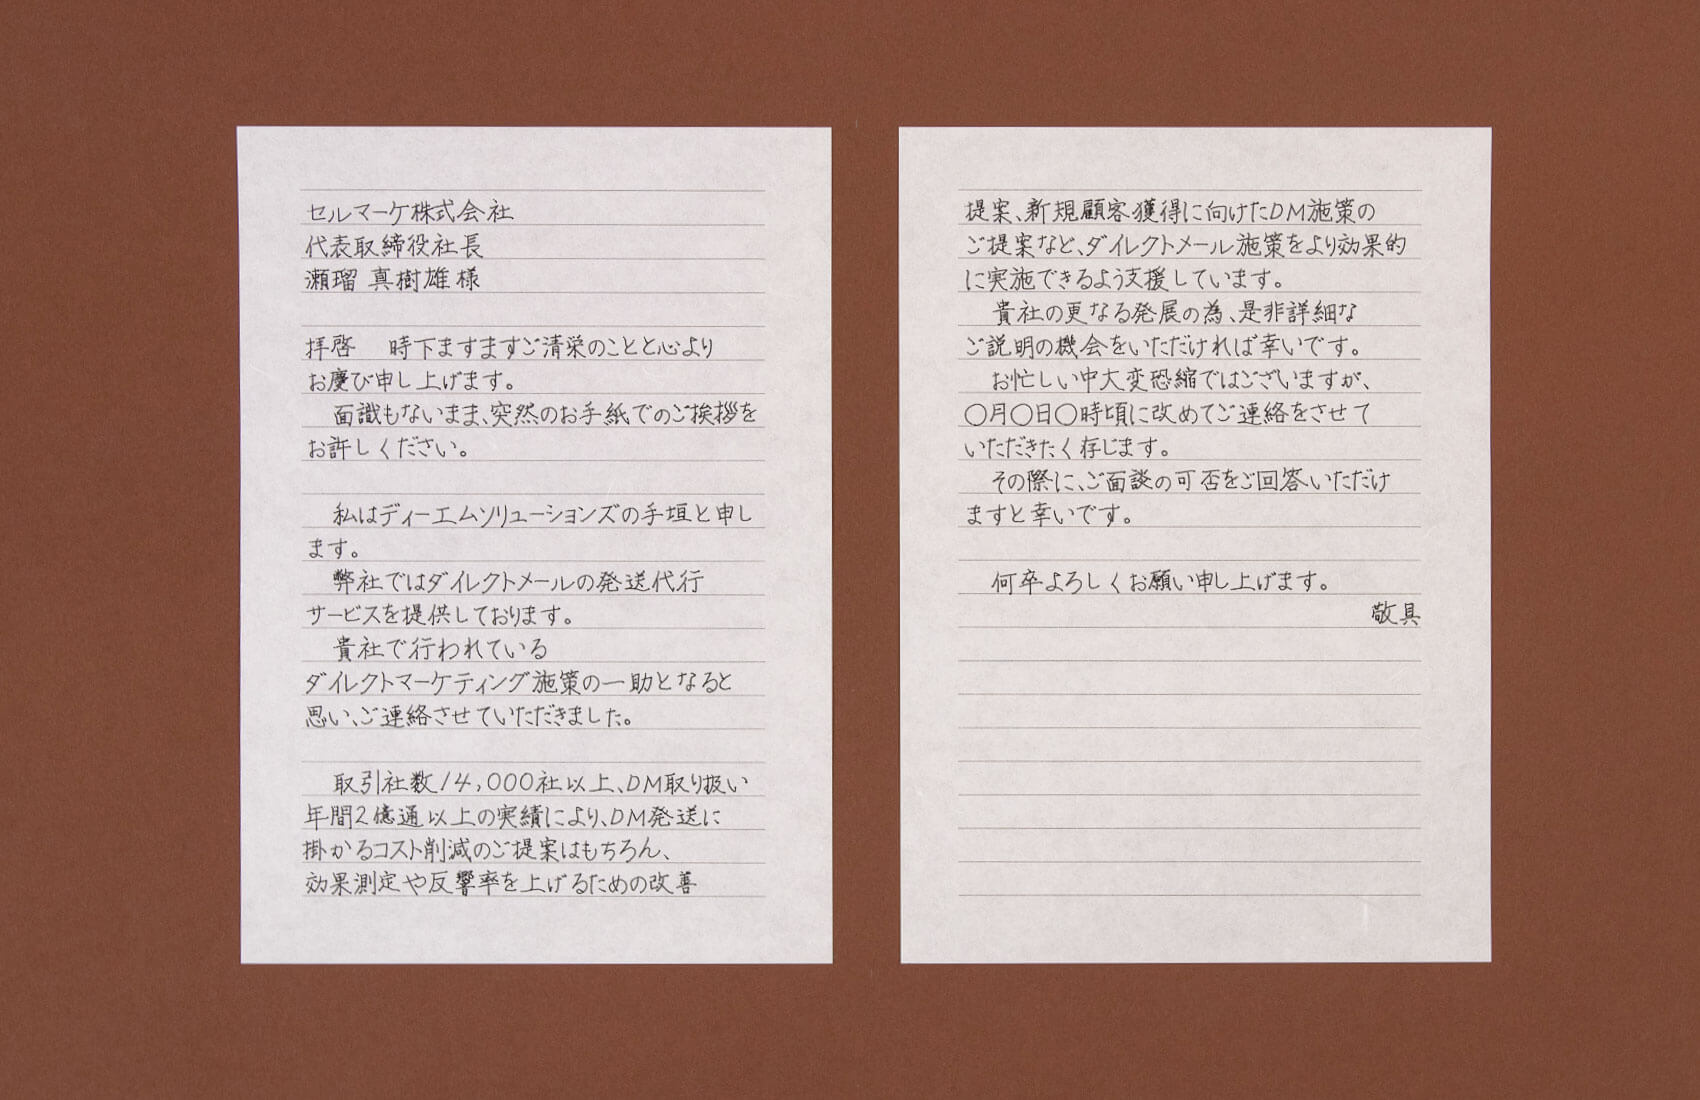 セルマーケ株式会社
代表取締役社長
瀬瑠 真樹雄様
拝啓　時下ますますご清栄のことと心より
お慶び申し上げます。
面識もないまま、突然のお手紙でのご挨拶を
お許しください。
私はディーエムソリューションズの手垣と申し
ます。
弊社ではダイレクトメールの発送代行
サービスを提供しております。
貴社で行われている
ダイレクトマーケティング施策の一助となると
思い、ご連絡させていただきました。
取引社数14,000社以上、DM取り扱い
年間2億通以上の実績により、DM発送に
掛かるコスト削減のご提案はもちろん、
効果測定や反響率を上げるための改善
提案、新規顧客獲得に向けたDM施策の
ご提案など、ダイレクトメール施策をより効果的
に実施できるよう支援しています。
貴社の更なる発展の為、是非詳細な
ご説明の機会をいただければ幸いです。
お忙しい中大変恐縮ではございますが、
〇月〇日〇時頃に改めてご連絡をさせて
いただきたく存じます。
その際に、ご面談の可否をご回答いただけ
ますと幸いです。
何卒よろしくお願い申し上げます。
敬具